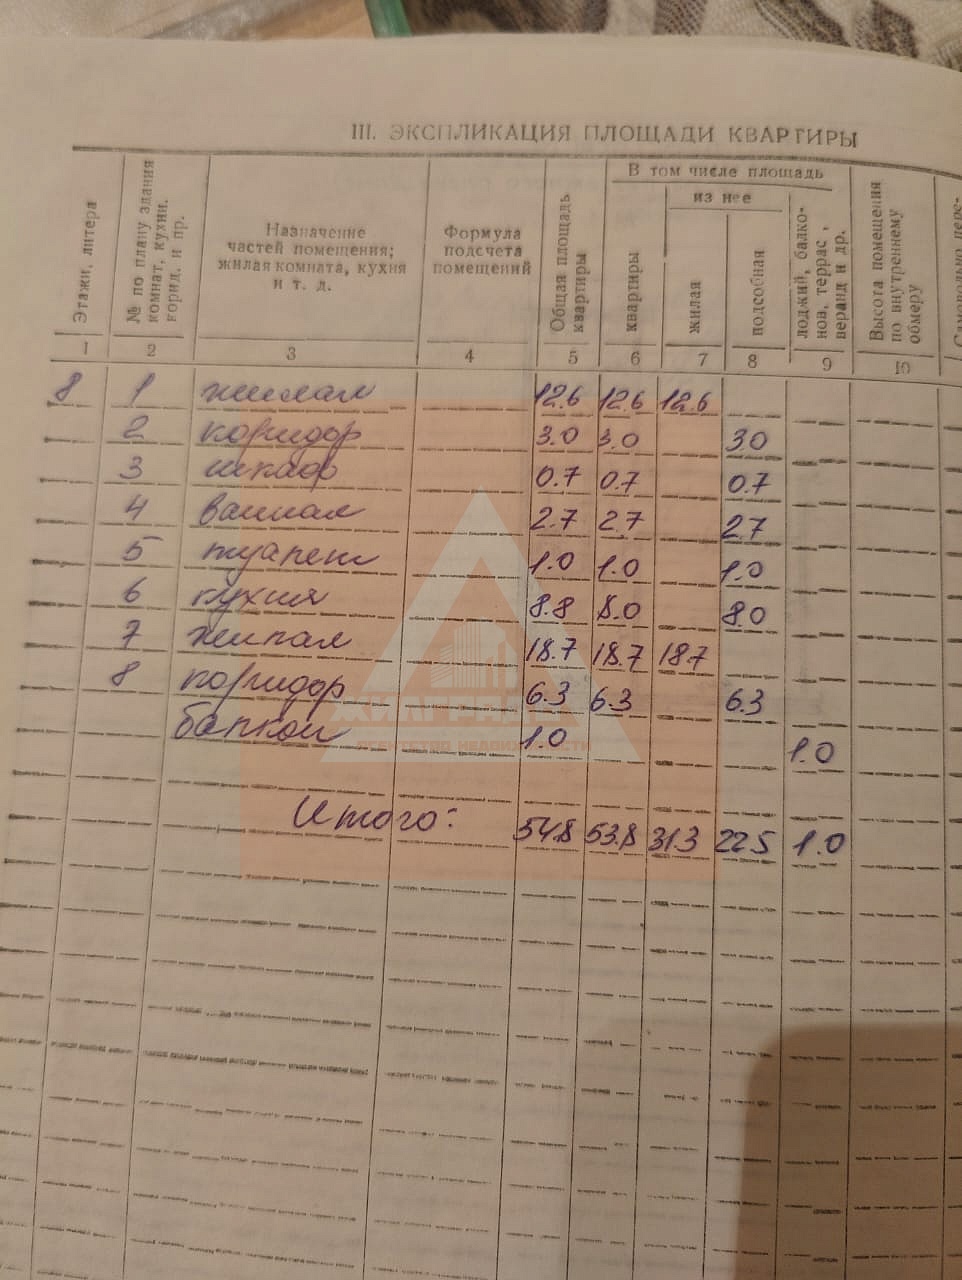 III. ЭКСПЛИКАЦИЯ ПЛОЩАДИ КВАРТИРЫ
Этажи, литера
№ по плану здания комнат, кухни. корид. и пр.
Назначение частей помещения; жилая комната, кухня и т. д.
Формула подсчета помещений
Общая площадь квартиры
В том числе площадь
из нее
квартиры
жилая
подсобная
лоджий, балконов, террас, веранд и др.
Высота помещения по внутреннему обмеру
Самовольно пере-
1 2 3 4 5 6 7 8 9 10
8 1 жилая 12.6 12.6 12.6
2 коридор 3.0 3.0 3.0
3 шкаф 0.7 0.7 0.7
4 ванная 2.7 2.7 2.7
5 туалет 1.0 1.0 1.0
6 кухня 8.8 8.0 8.0
7 жилая 18.7 18.7 18.7
8 коридор 6.3 6.3 6.3
балкон 1.0 1.0
Итого: 54.8 53.8 31.3 22.5 1.0
АГЕНТСТВО НЕДВИЖИМОСТИ